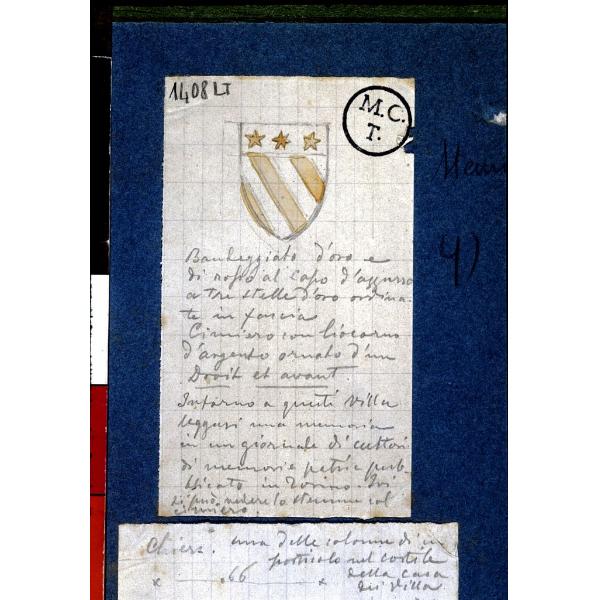 1408 LT
M.C.
T.
Bandeggiato d'oro e
di rosso al Capo d'azzurro
a tre stelle d'oro ordina-
te in fascia
Cimiero con liocorno
d'argento ornato d'un
Droit et avant
Intorno a questi Villa
leggasi una memoria
in un giornale di cultori
di memorie patrie pub-
blicato in Torino. Ivi
si può vedere lo stemma col
cimiero.
4)
Chieri. una delle colonne di un
porticato nel cortile
x 66 x della casa
dei Villa